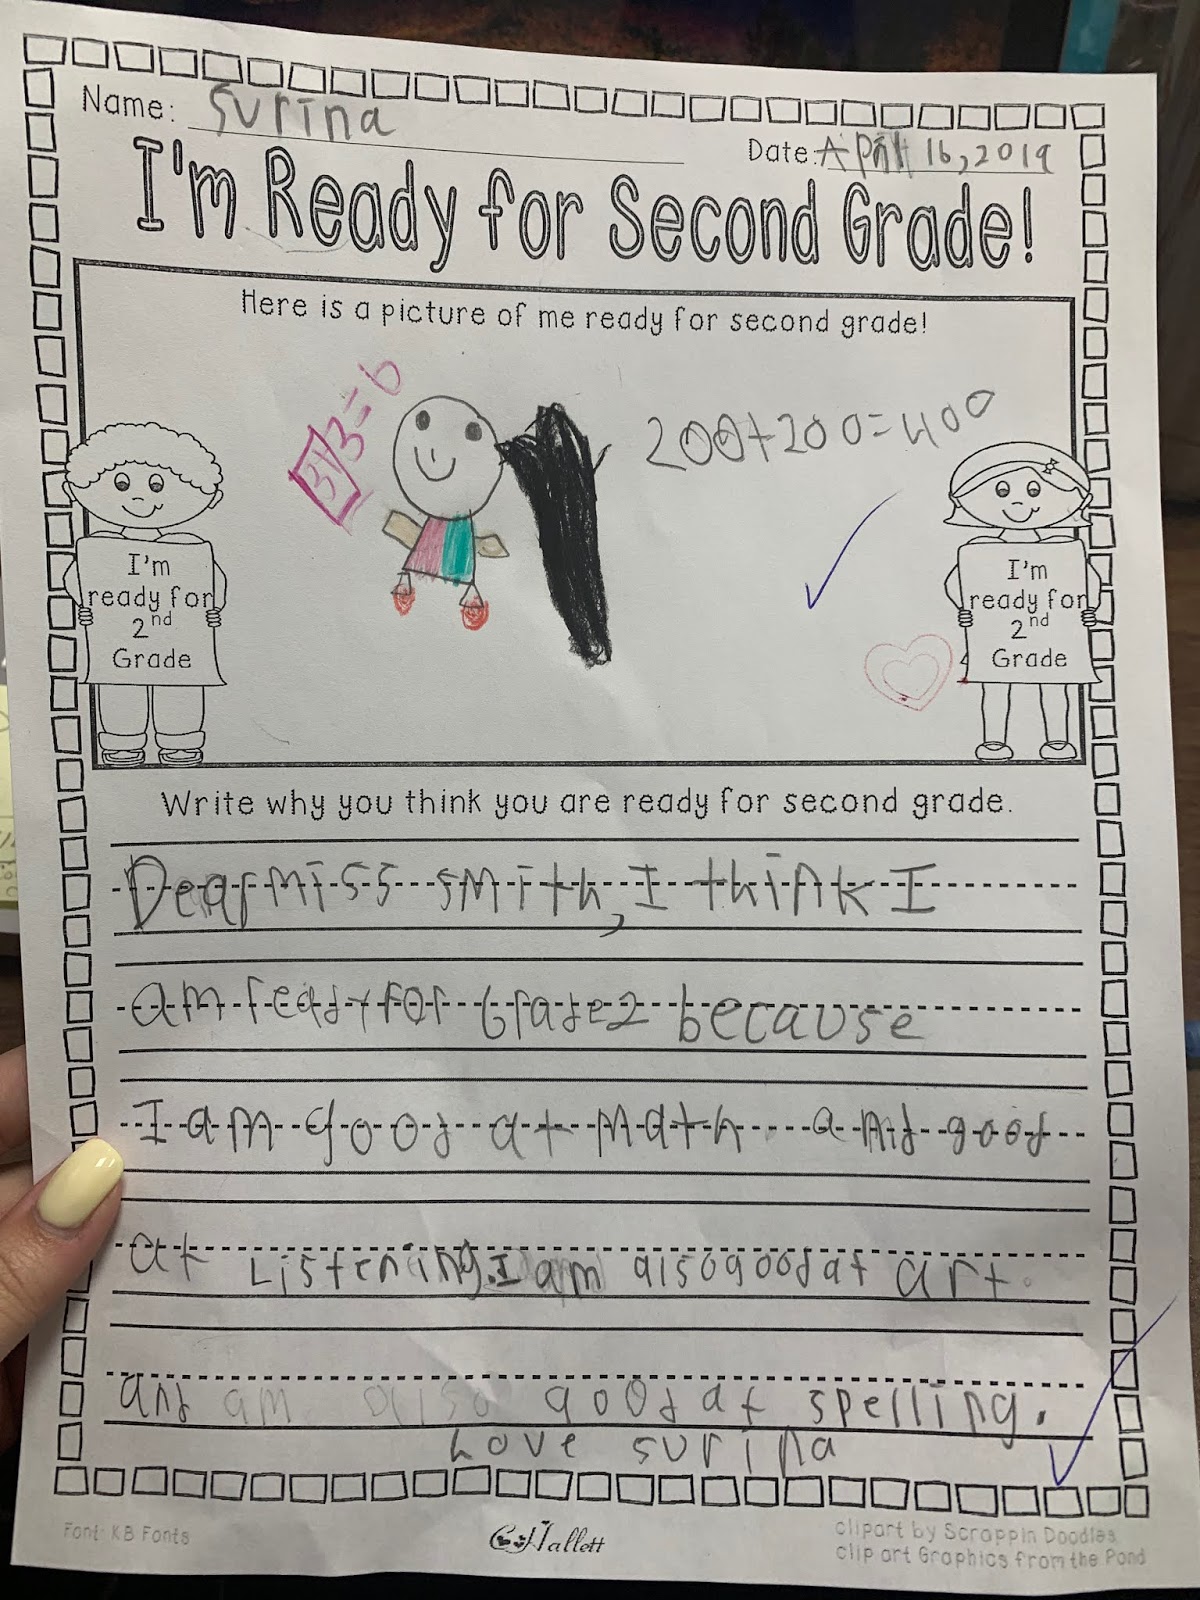 Name: Surina
Date: April 16, 2019
I'm Ready for Second Grade!
Here is a picture of me ready for second grade!
3+3=6
200+200=400
I'm
ready for
2nd
Grade
I'm
ready for
2nd
Grade
Write why you think you are ready for second grade.
Dear miss smith, I think I
am ready for Grade 2 because
I am good at math and good
at Listening. I am also good at art.
and am also good at spelling.
Love surina
Font: KB Fonts
CHallett
clipart by Scrappin Doodles
clip art Graphics from the Pond